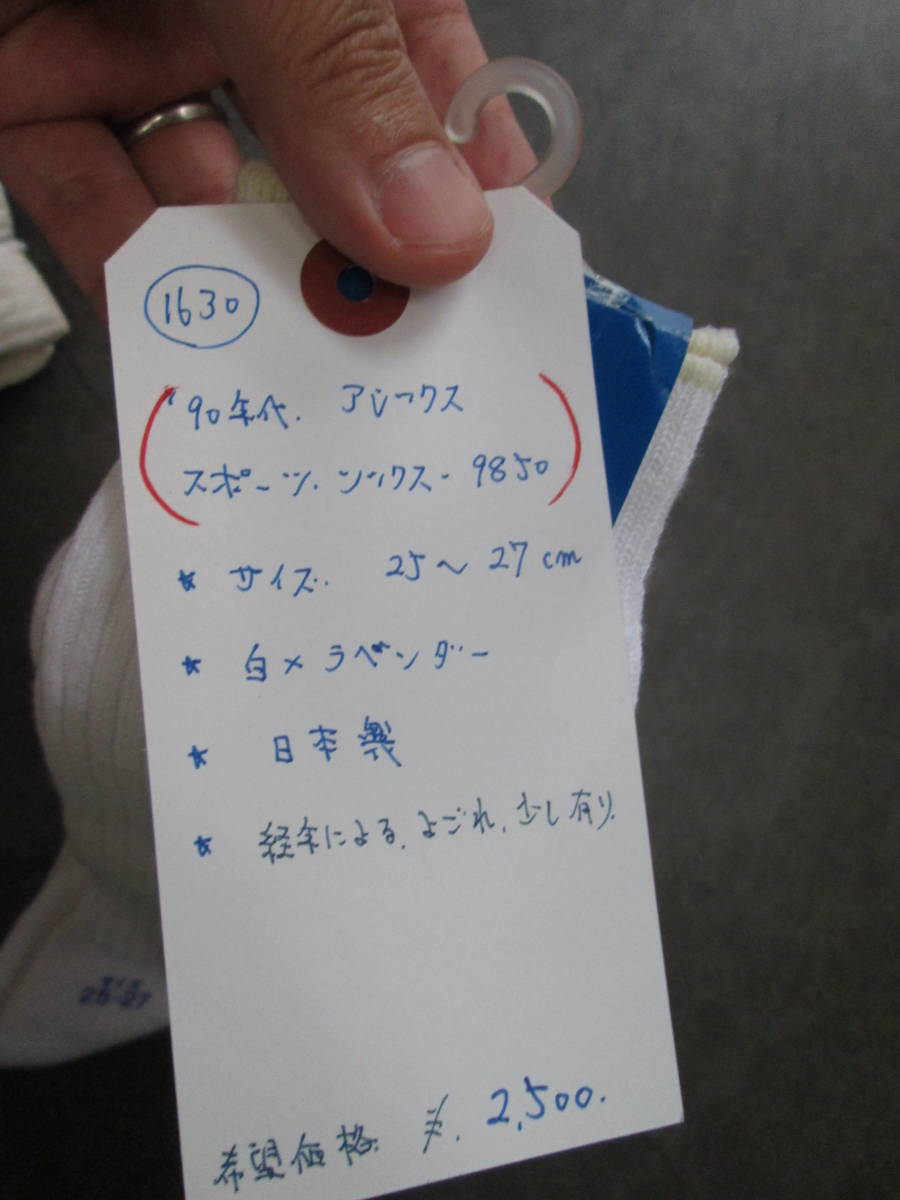 1630
'90年代. アシックス
スポーツ. ソックス- 9850
★ サイズ. 25〜27cm
★ 白×ラベンダー
★ 日本製
★ 経年による、よごれ、少し有り.
希望価格 ¥. 2,500.
25-27